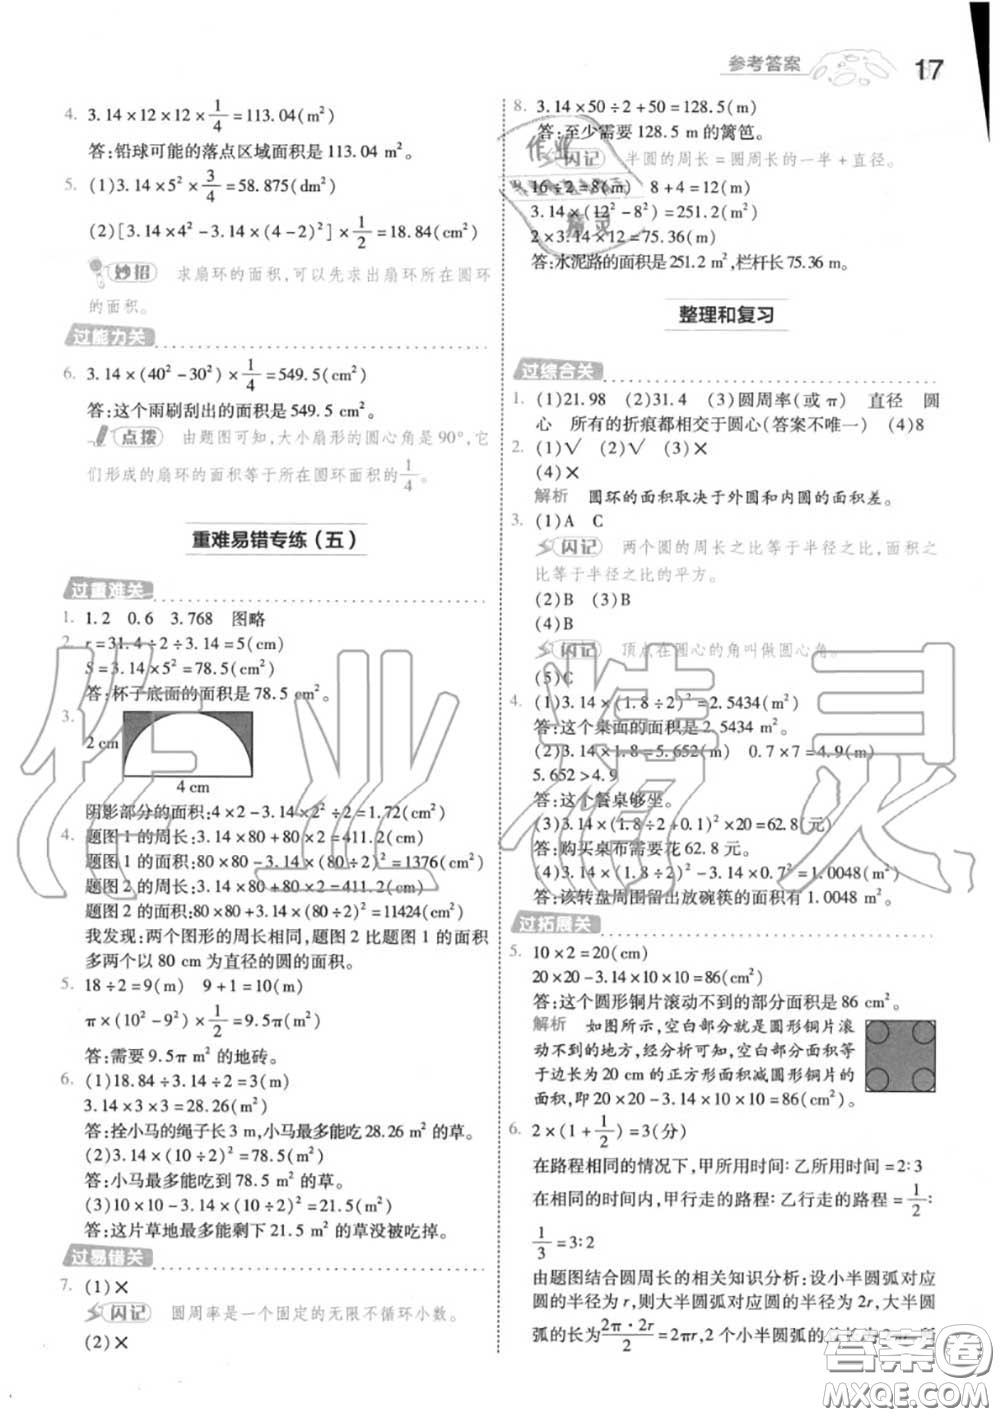 参考答案
17
4. 3.14×12×12×1/4=113.04(m²)
答:铅球可能的落点区域面积是113.04 m²。
5. (1)3.14×5²×3/4=58.875(dm²)
(2)[3.14×4²-3.14×(4-2)²]×1/2=18.84(cm²)
妙招 求扇环的面积,可以先求出扇环所在圆环
的面积。
过能力关
6. 3.14×(40²-30²)×1/4=549.5(cm²)
答:这个雨刷刮出的面积是549.5 cm²。
点拨 由题图可知,大小扇形的圆心角是90°,它
们形成的扇环的面积等于所在圆环面积的1/4。
重难易错专练(五)
过重难关
1. 1.2 0.6 3.768 图略
2. r=31.4÷2÷3.14=5(cm)
S=3.14×5²=78.5(cm²)
答:杯子底面的面积是78.5 cm²。
3.
2 cm
4 cm
阴影部分的面积:4×2-3.14×2²÷2=1.72(cm²)
4. 题图1的周长:3.14×80+80×2=411.2(cm)
题图1的面积:80×80-3.14×(80÷2)²=1376(cm²)
题图2的周长:3.14×80+80×2=411.2(cm)
题图2的面积:80×80+3.14×(80÷2)²=11424(cm²)
我发现:两个图形的周长相同,题图2比题图1的面积
多两个以80 cm为直径的圆的面积。
5. 18÷2=9(m) 9+1=10(m)
π×(10²-9²)×1/2=9.5π(m²)
答:需要9.5π m²的地砖。
6. (1)18.84÷3.14÷2=3(m)
3.14×3×3=28.26(m²)
答:拴小马的绳子长3 m,小马最多能吃28.26 m²的草。
(2)3.14×(10÷2)²=78.5(m²)
答:小马最多能吃到78.5 m²的草。
(3)10×10-3.14×(10÷2)²=21.5(m²)
答:这片草地最多能剩下21.5 m²的草没被吃掉。
过易错关
7. (1)×
闪记 圆周率是一个固定的无限不循环小数。
(2)×
8. 3.14×50÷2+50=128.5(m)
答:至少需要128.5 m的篱笆。
闪记 半圆的周长=圆周长的一半+直径。
16÷2=8(m) 8+4=12(m)
3.14×(12²-8²)=251.2(m²)
2×3.14×12=75.36(m)
答:水泥路的面积是251.2 m²,栏杆长75.36 m。
整理和复习
过综合关
1. (1)21.98 (2)31.4 (3)圆周率(或π) 直径 圆
心 所有的折痕都相交于圆心(答案不唯一) (4)8
2. (1)√ (2)√ (3)×
(4)×
解析 圆环的面积取决于外圆和内圆的面积差。
3. (1)A C
闪记 两个圆的周长之比等于半径之比,面积之
比等于半径之比的平方。
(2)B (3)B
(4)B
闪记 顶点在圆心的角叫做圆心角。
(5)C
4. (1)3.14×(1.8÷2)²=2.5434(m²)
答:这个桌面的面积是2.5434 m²。
(2)3.14×1.8=5.652(m) 0.7×7=4.9(m)
5.652>4.9
答:这个餐桌够坐。
(3)3.14×(1.8÷2+0.1)²×20=62.8(元)
答:购买桌布需要花62.8元。
(4)3.14×(1.8÷2)²-3.14×0.7²=1.0048(m²)
答:该转盘周围留出放碗筷的面积有1.0048 m²。
过拓展关
5. 10×2=20(cm)
20×20-3.14×10×10=86(cm²)
答:这个圆形铜片滚动不到的部分面积是86 cm²。
解析 如图所示,空白部分就是圆形铜片滚
动不到的地方,经分析可知,空白部分面积等
于边长为20 cm的正方形面积减圆形铜片的
面积,即20×20-3.14×10×10=86(cm²)。
6. 2×(1+1/2)=3(分)
在路程相同的情况下,甲所用时间:乙所用时间=2:3
在相同的时间内,甲行走的路程:乙行走的路程=1/2:
1/3=3:2
由题图结合圆周长的相关知识分析:设小半圆弧对应
圆的半径为r,则大半圆弧对应圆的半径为2r,大半圆
弧的长为2π·2r/2=2πr,2个小半圆弧的总长为2πr,所
作业精灵
作业
精灵
答案圈
MXQE.COM